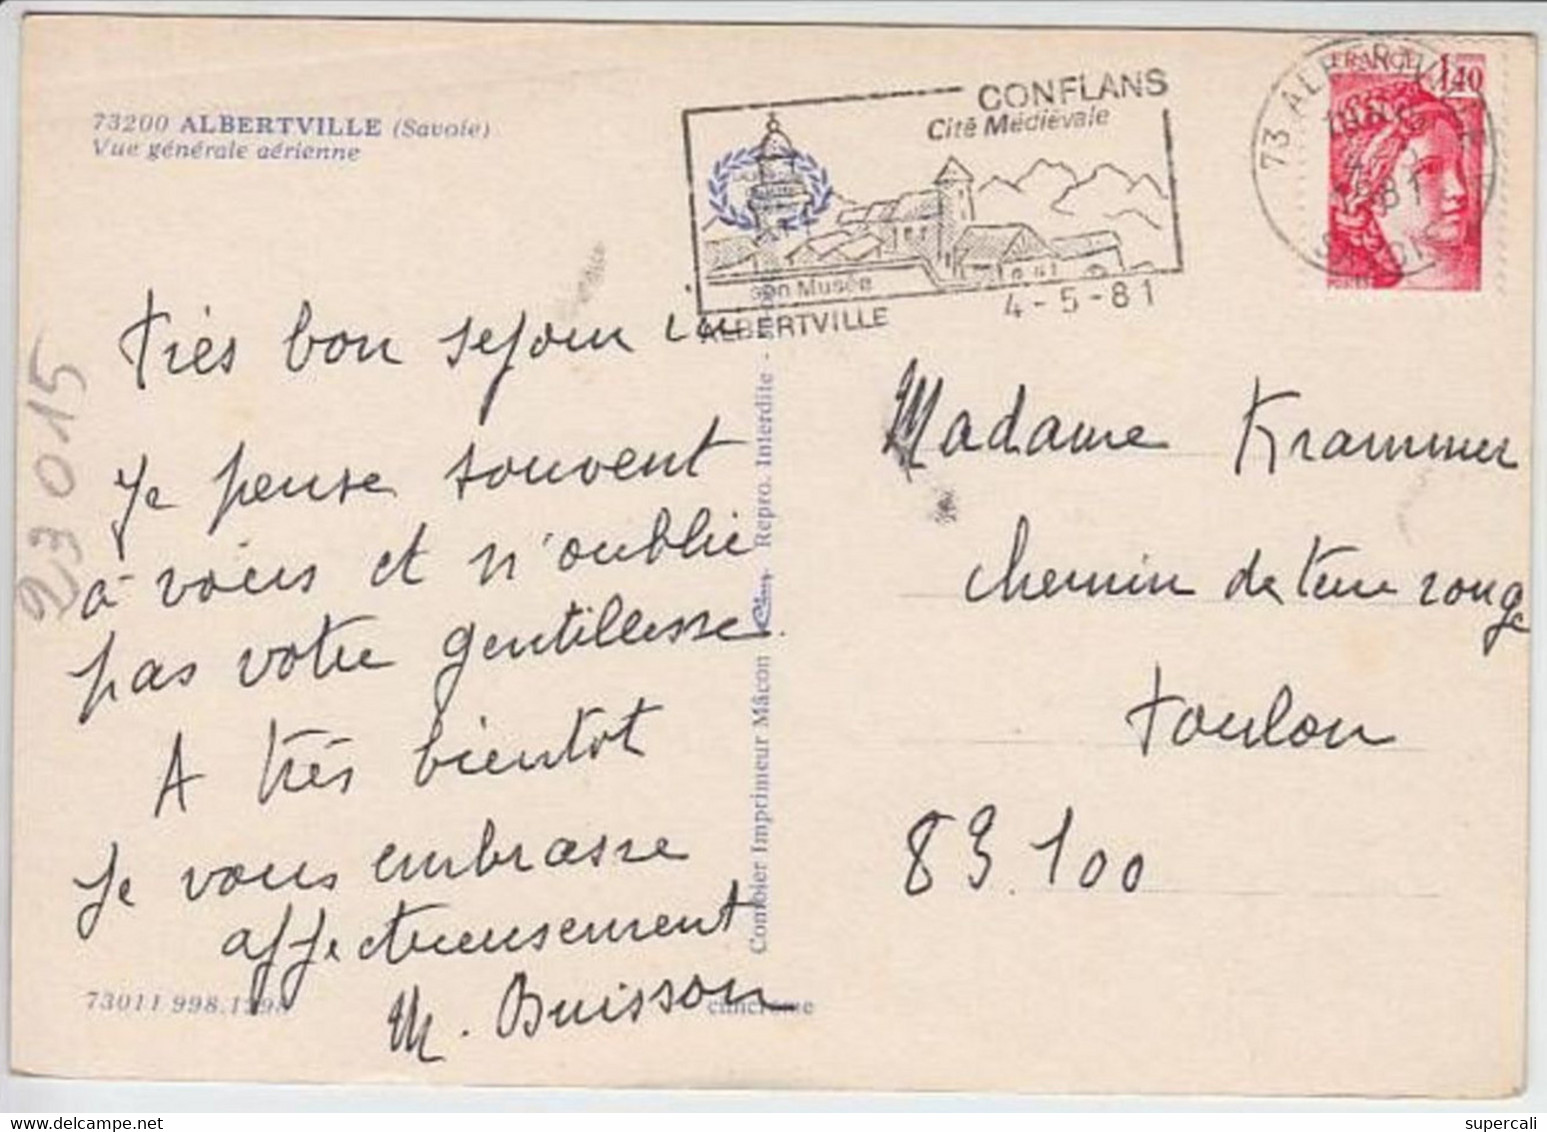 73200 ALBERTVILLE (Savoie)
Vue générale aérienne
CONFLANS
Cité Médiévale
son Musée
ALBERTVILLE
4-5-81
73 ALBERTVILLE
FRANCE 1,40
POSTES
Très bon sejour ici
Je pense souvent
à vous et n'oublie
pas votre gentillesse.
A très bientot
Je vous embrasse
affectueusement
M. Buisson
Madame Krammer
chemin de terre rouge
Toulon
83.100
23015
Combier Imprimeur Mâcon Repro. Interdite -
73011 998.1298